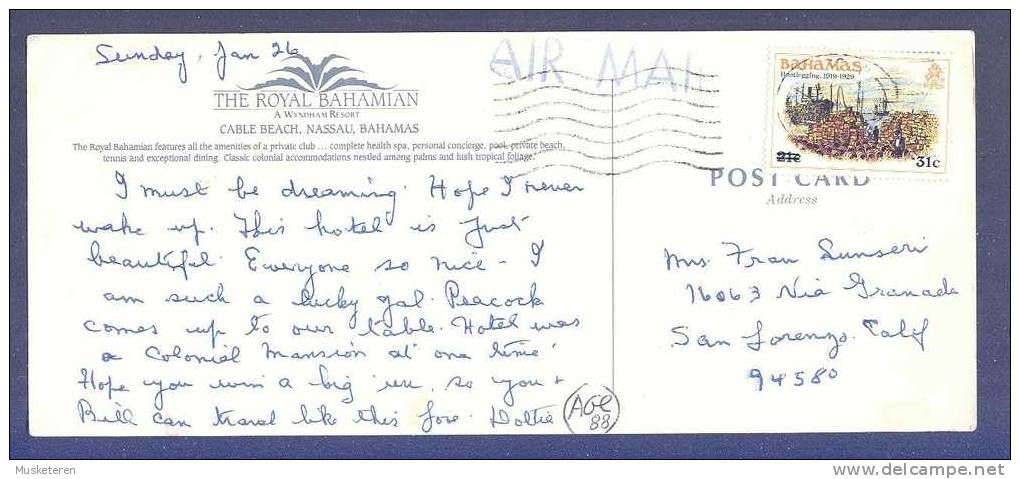 Sunday, Jan 26
THE ROYAL BAHAMIAN
A WYNDHAM RESORT
CABLE BEACH, NASSAU, BAHAMAS
The Royal Bahamian features all the amenities of a private club ... complete health spa, personal concierge, pool, private beach,
tennis and exceptional dining. Classic colonial accommodations nestled among palms and lush tropical foliage.
I must be dreaming. Hope I never
wake up. This hotel is just
beautiful. Everyone so nice - I
am such a lucky gal. Peacock
comes up to our table. Hotel was
a Colonial Mansion at one time.
Hope you win a big 'un, so you +
Bill can travel like this. Love Dottie
AGE
88
AIR MAIL
BAHAMAS
Bootlegging, 1919-1929
21c
31c
POST CARD
Address
Mrs Fran Sunseri
16063 Via Granada
San Lorenzo, Calif
94580
Musketeren
http://www.delcampe.net